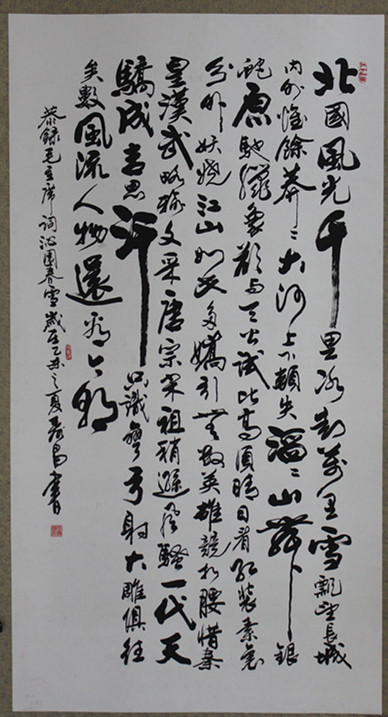 北國風光千里冰封萬里雪飄望長城
內外惟餘莽々大河上下頓失滔々山舞銀
蛇原馳蠟象欲與天公試比高須晴日看紅裝素裹
分外妖嬈江山如此多嬌引無數英雄競折腰惜秦
皇漢武略輸文采唐宗宋祖稍遜風騷一代天
驕成吉思汗只識彎弓射大雕俱往
矣數風流人物還看今朝
恭録毛主席詞沁園春雪歲在乙未之夏昌書